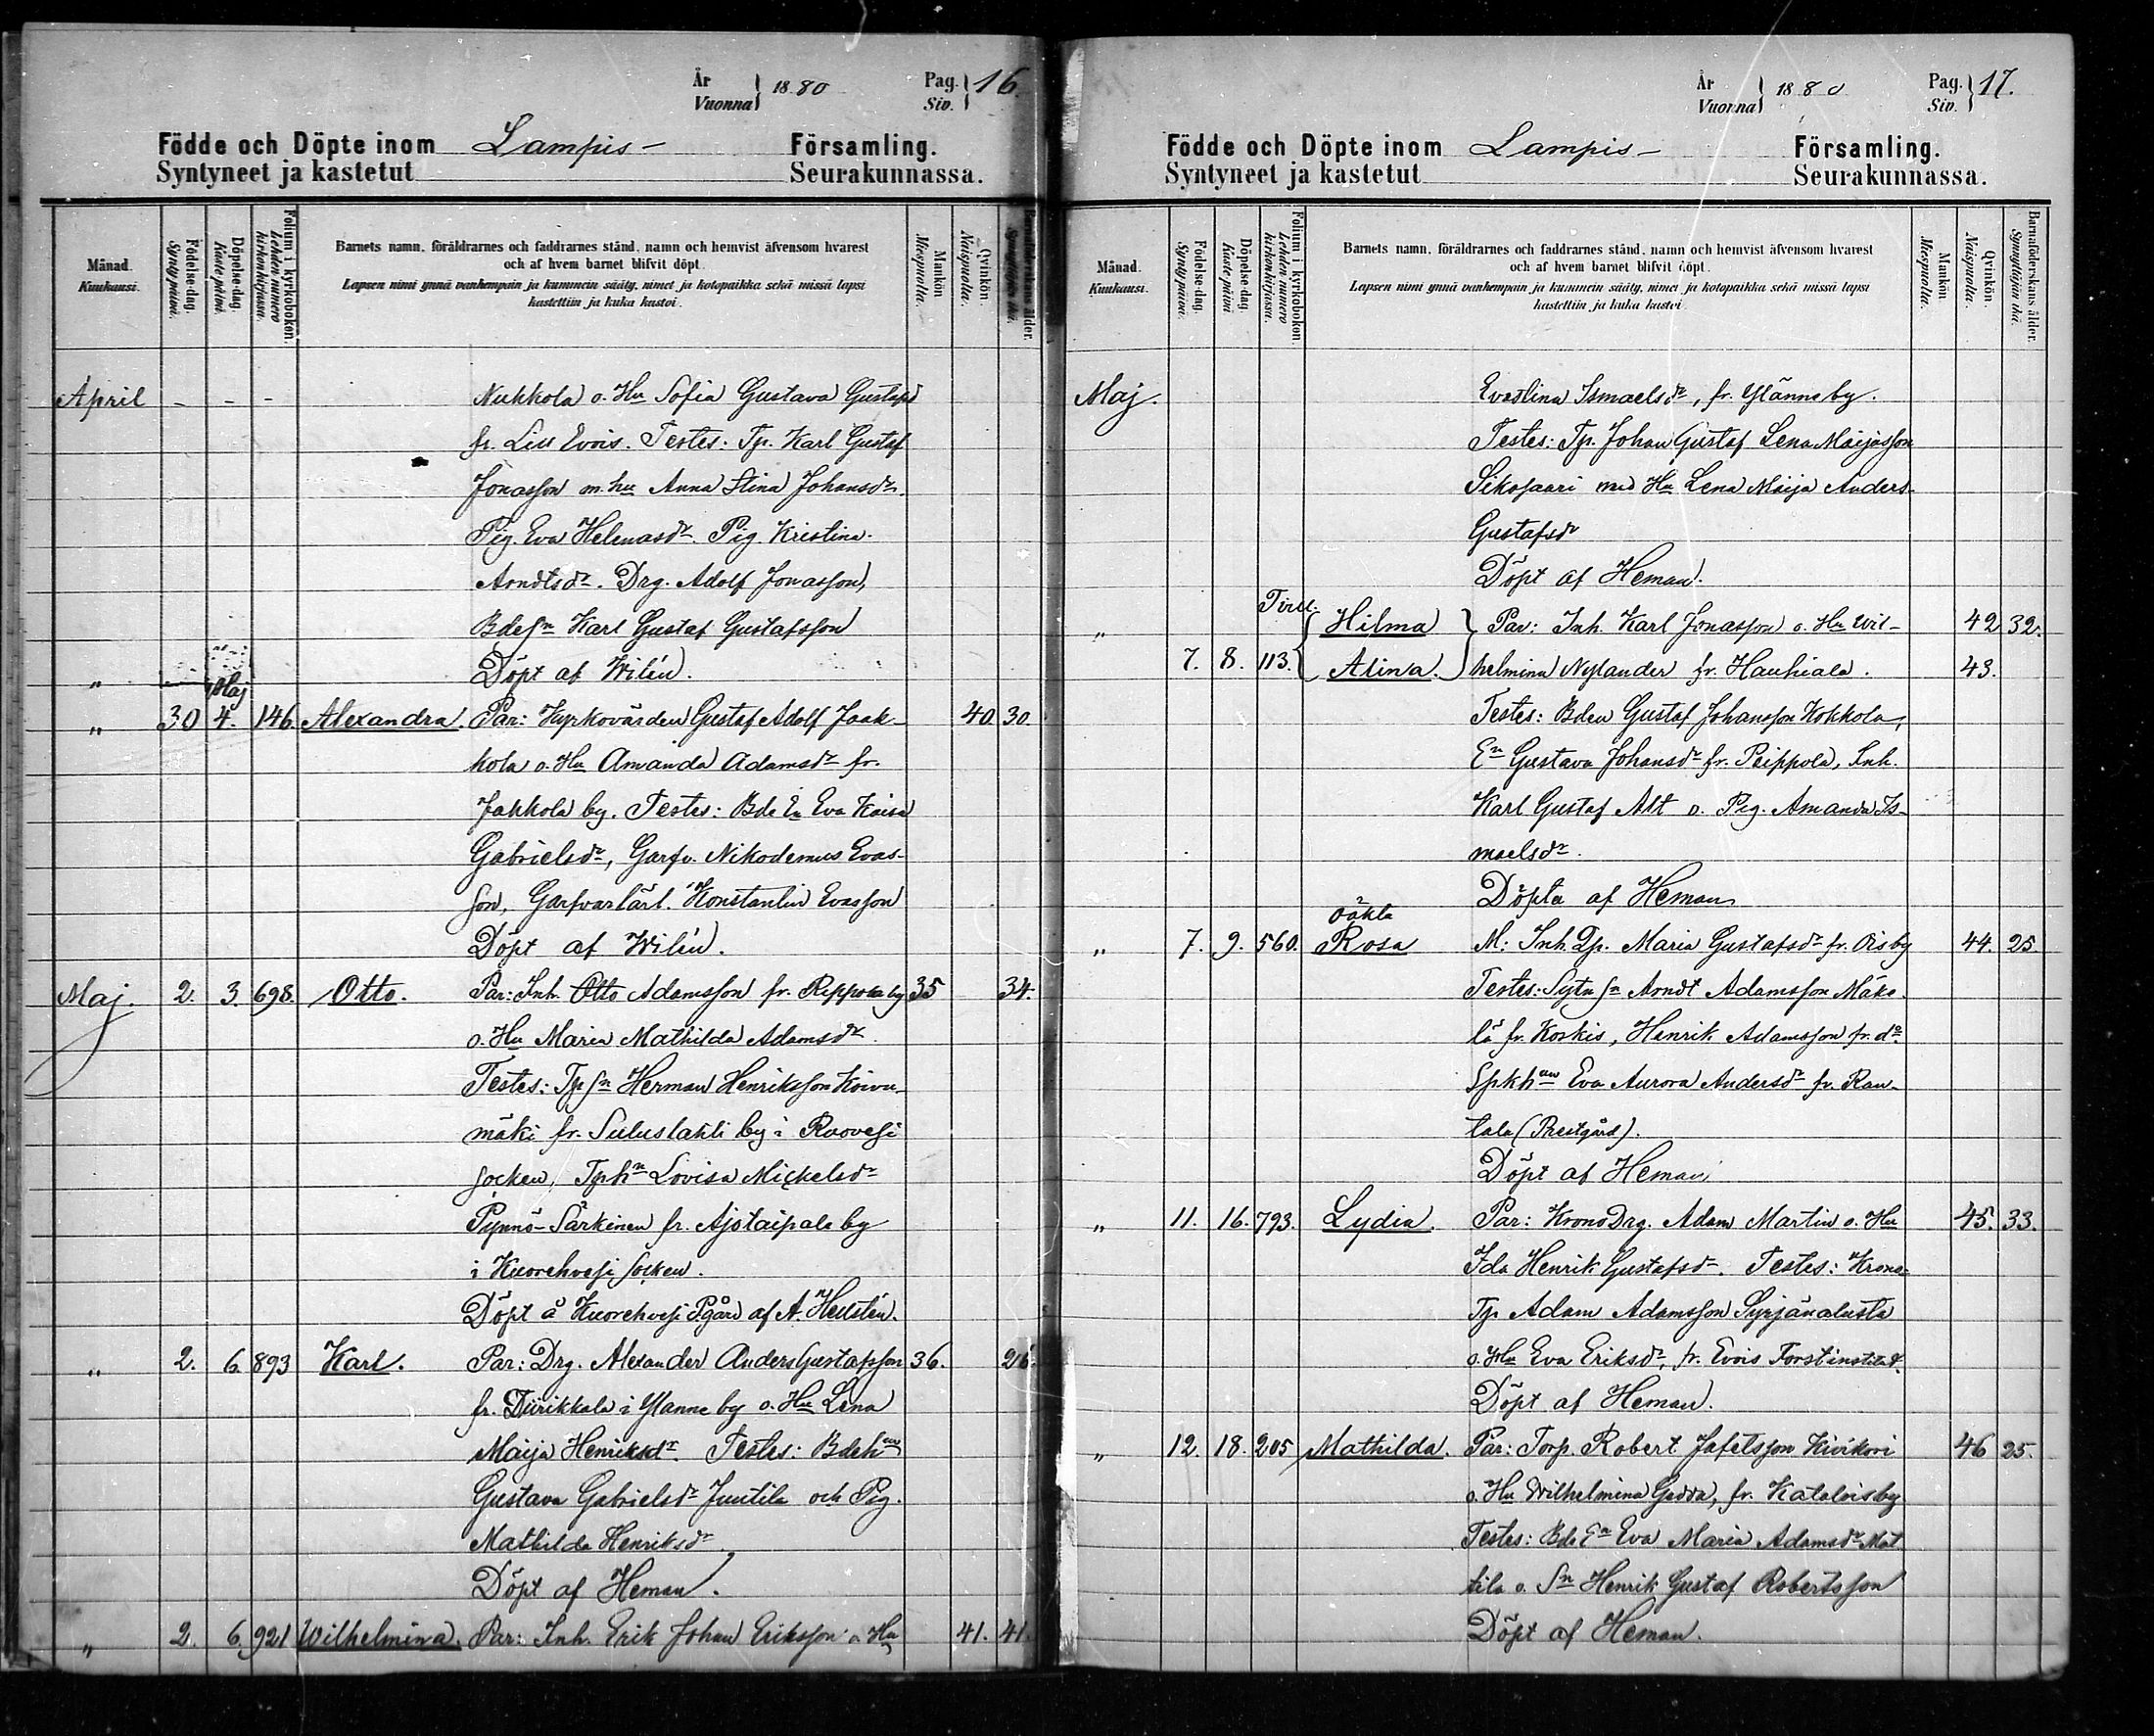 År
Vuonna } 1880
Pag.
Siv. } 16.
Födde och Döpte inom Lampis- Församling.
Syntyneet ja kastetut Seurakunnassa.
Månad. Kuukausi.
Födelse-dag. Syntypäivä.
Döpelse-dag. Kastepäivä.
Folium i kyrkobokon. Lehden numero kirkonkirjassa.
Barnets namn, föräldrarnes och faddrarnes stånd, namn och hemvist äfvensom hvarest
och af hvem barnet blifvit döpt.
Lapsen nimi ynnä vanhempain ja kummein sääty, nimet ja kotopaikka sekä missä lapsi
kastettiin ja kuka kastoi.
Mankön Miespuolta.
Qvinkön. Naispuolta.
Barnaföderskans ålder. Synnyttäjän ikä.
April - - - Nukkola o. Hu Sofia Gustava Gustafsd
fr. Lill Evois. Testes: Tp. Karl Gustaf
Jonasson m. hu Anna Stina Johansdr.
Pig. Eva Helenasdr. Pig. Kristina
Arndtsdr. Drg. Adolf Jonasson,
Bdesn Karl Gustaf Gustafsson
„ Döpt af Wilén.
Maj
„ 30 4. 146. Alexandra. Par: Kyrkovärden Gustaf Adolf Jaak- 40. 30.
kola o. Hu Amanda Adamsdr fr.
Jakkola by. Testes: Bde En Eva Kaisa
Gabrielsdr, Garfv. Nikodemus Evas-
son, Garfvarlärl. Konstantin Evasson
Döpt af Wilén.
Maj. 2. 3. 698. Otto. Par: Inh. Otto Adamsson fr. Reppola by 35 34.
o. Hu Maria Mathilda Adamsdr.
Testes: Tp sn Herman Henriksson Koivu-
mäki fr. Suluslahti by i Ruovesi
socken, Tphn Lovisa Mickelsdr
Pynnö-Särkinen fr. Ajostaipale by
i Kuorehvesi socken.
Döpt å Kuorehvesi Pgård af A. Hellstén.
„ 2. 6. 893 Karl. Par: Drg. Alexander Anders Gustafsson 36. 26.
fr. Tiirikkala i Ylänne by o. Hu Lena
Maija Henriksdr. Testes: Bdehun
Gustava Gabrielsdr Juutila och Pig.
Mathilda Henriksdr
Döpt af Heman.
„ 2. 6. 921 Wilhelmina. Par: Inh. Erik Johan Eriksson o Hu 41. 41.
År
Vuonna } 1880
Pag.
Siv. } 17.
Födde och Döpte inom Lampis- Församling.
Syntyneet ja kastetut Seurakunnassa.
Månad. Kuukausi.
Födelse-dag. Syntypäivä.
Döpelse-dag. Kastepäivä.
Folium i kyrkobokon. Lehden numero kirkonkirjassa.
Barnets namn, föräldrarnes och faddrarnes stånd, namn och hemvist äfvensom hvarest
och af hvem barnet blifvit döpt.
Lapsen nimi ynnä vanhempain ja kummein sääty, nimet ja kotopaikka sekä missä lapsi
kastettiin ja kuka kastoi.
Mankön Miespuolta.
Qvinkön. Naispuolta.
Barnaföderskans ålder. Synnyttäjän ikä.
Maj. Evastina Ismaelsdr, fr. Ylänne by.
Testes: Tp. Johan Gustaf Lena Maijasson
Sikosaari med Hu Lena Maija Anders-
Gustafsdr
Döpt af Heman.
„ Tvill. Hilma Par: Inh. Karl Jonasson o. Hu Wil- 42 32.
7. 8. 113. Alina. helmina Nylander fr. Hauhiala. 43.
Testes: Bden Gustaf Johansson Kokkola,
En Gustava Johansdr fr. Peippola, Inh.
Karl Gustaf Alt o. Pig. Amanda Is-
maelsdr.
Döpta af Heman
oäkta
„ 7. 9. 560. Rosa M: Inh. Dp. Maria Gustafsdr fr. Ois by 44. 25
Testes: Sytn sn Arndt Adamsson Mäke-
lä fr. Korkis, Henrik Adamsson fr. do.
Spkhun Eva Aurora Andersdr fr. Rau-
tala (Prestgård).
Döpt af Heman
„ 11. 16. 793. Lydia. Par: Krono Drg. Adam Martin o. Hu 45. 33.
Ida Henrik Gustafsdr. Testes: Krono-
Tp Adam Adamsson Syrjänalusta
o. Hu Eva Eriksdr, fr. Evois Forstinstitut.
Döpt af Heman.
„ 12. 18. 205 Mathilda. Par: Torp. Robert Jafetsson Kivikori 46 25.
o. Hu Wilhelmina Gedda, fr. Katalois by
Testes: Bde En Eva Maria Adamsdr Mat
tila o. Sn Henrik Gustaf Robertsson
Döpt af Heman.